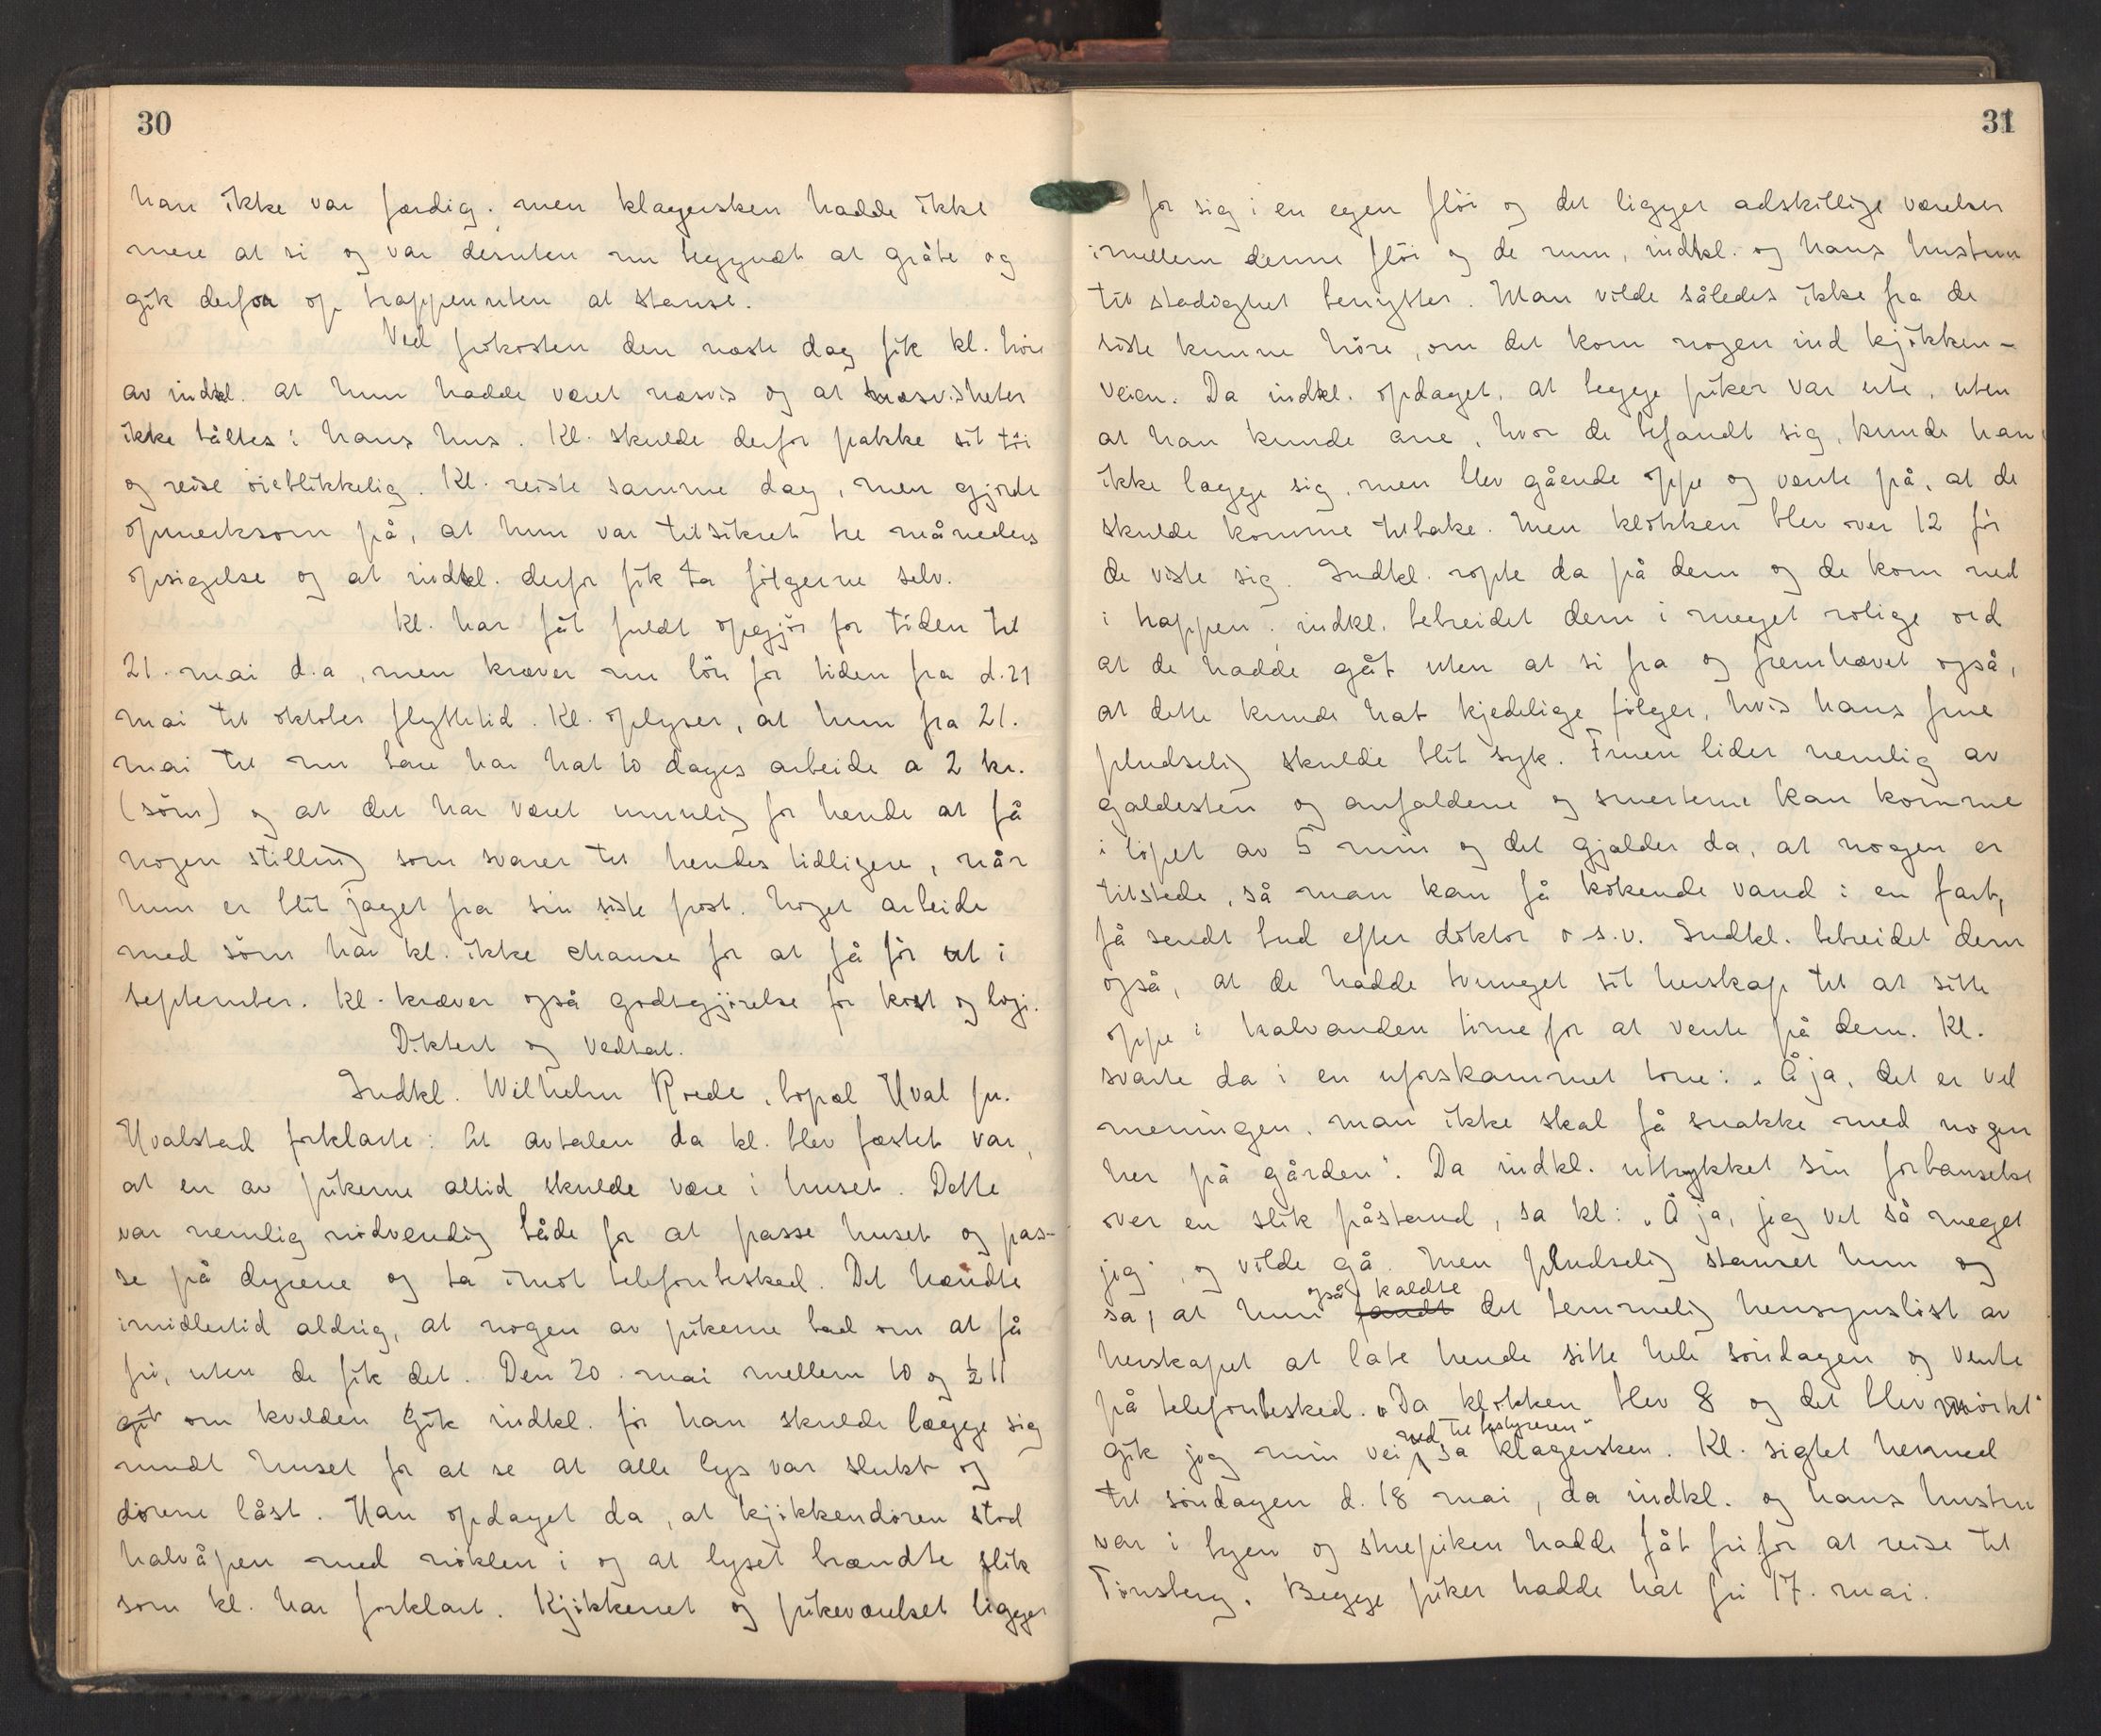 30
han ikke var færdig. men klagersken hadde ikke
mere at si og var desuten nu begyndt at gråte og
gik derfor op trappen uten at stanse.
Ved frokosten den næste dag fik kl. høre
av indkl. at hun hadde været næsvis og at næsvisheter
ikke tåltes i hans hus. Kl. skulde derfor pakke sit tøi
og reise øieblikkelig. Kl. reiste samme dag, men gjorde
opmerksom på, at hun var tilsikret tre måneders
opsigelse og at indkl. derfor fik ta følgerne selv.
Kl. har fåt fuldt opgjør for tiden til
21. mai d.a, men kræver nu løn for tiden fra d. 21
mai til oktober flyttetid. Kl. oplyser, at hun fra 21.
mai til nu bare har hat 10 dages arbeide a 2 kr.
(søm) og at det har været umulig for hende at få
nogen stilling som svarer til hendes tidligere, når
hun er blit jaget fra sin siste post. Noget arbeide
med søm har kl. ikke chanse for at få før ut i
september. Kl. kræver også godtgjørelse for kost og logi.
Diktert og vedtat.
Indkl. Wilhelm Roede, bopæl Hval pr.
Hvalstad forklarte: At avtalen da kl. blev fæstet var,
at en av pikerne altid skulde være i huset. Dette
var nemlig nødvendig både for at passe huset og pas-
se på dyrene og ta imot telefonbesked. Det hændte
imidlertid aldrig, at nogen av pikerne bad om at få
fri, uten de fik det. Den 20. mai mellem 10 og ½ 11
om kvelden gik indkl. før han skulde lægge sig
rundt huset for at se at alle lys var slukt og
dørene låst. Han opdaget da, at kjøkkendøren stod
halvåpen med nøklen i og at lyset brændte slik
som kl. har forklart. Kjøkkenet og pikeværelset ligger
31
for sig i en egen fløi og det ligger adskillige værelser
imellem denne fløi og de rum, indkl. og hans hustru
til stadighet benytter. Man vilde således ikke fra de
siste kunne høre, om det kom nogen ind kjøkken-
veien. Da indkl. opdaget, at begge piker var ute, uten
at han kunde ane, hvor de befandt sig, kunde han
ikke lægge sig, men blev gående oppe og vente på, at de
skulde komme tilbake. Men klokken blev over 12 før
de viste sig. Indkl. ropte da på dem og de kom ned
i trappen. indkl. bebreidet dem i meget rolige ord
at de hadde gåt uten at si fra og fremhævet også,
at dette kunde hat kjedelige følger, hvis hans frue
pludselig skulde blit syk. Fruen lider nemlig av
galdesten og anfaldene og smerterne kan komme
i løpet av 5 min og det gjælder da, at nogen er
tilstede, så man kan få kokende vand i en fart,
få sendt bud efter doktor o.s.v. Indkl. bebreidet dem
også, at de hadde tvunget sit herskap til at sitte
oppe i halvanden time for at vente på dem. Kl.
svarte da i en uforskammet tone: „Å ja, det er vel
meningen, man ikke skal få snakke med nogen
her på gården". Da indkl. uttrykket sin forbauselse
over en slik påstand, sa kl: „Å ja, jeg vet så meget
jeg", og vilde gå. Men pludselig stanset hun og
sa, at hun også kaldte fandt det temmelig hensynsløst av
herskapet at late hende sitte hele søndagen og vente
på telefonbesked. „Da klokken blev 8 og det blev mørkt"
gik jeg min vei ned til bestyreren" sa klagersken. Kl. sigtet hermed
til søndagen d. 18 mai, da indkl. og hans hustru
var i byen og stuepiken hadde fåt fri for at reise til
Tønsberg. Begge piker hadde hat fri 17. mai.